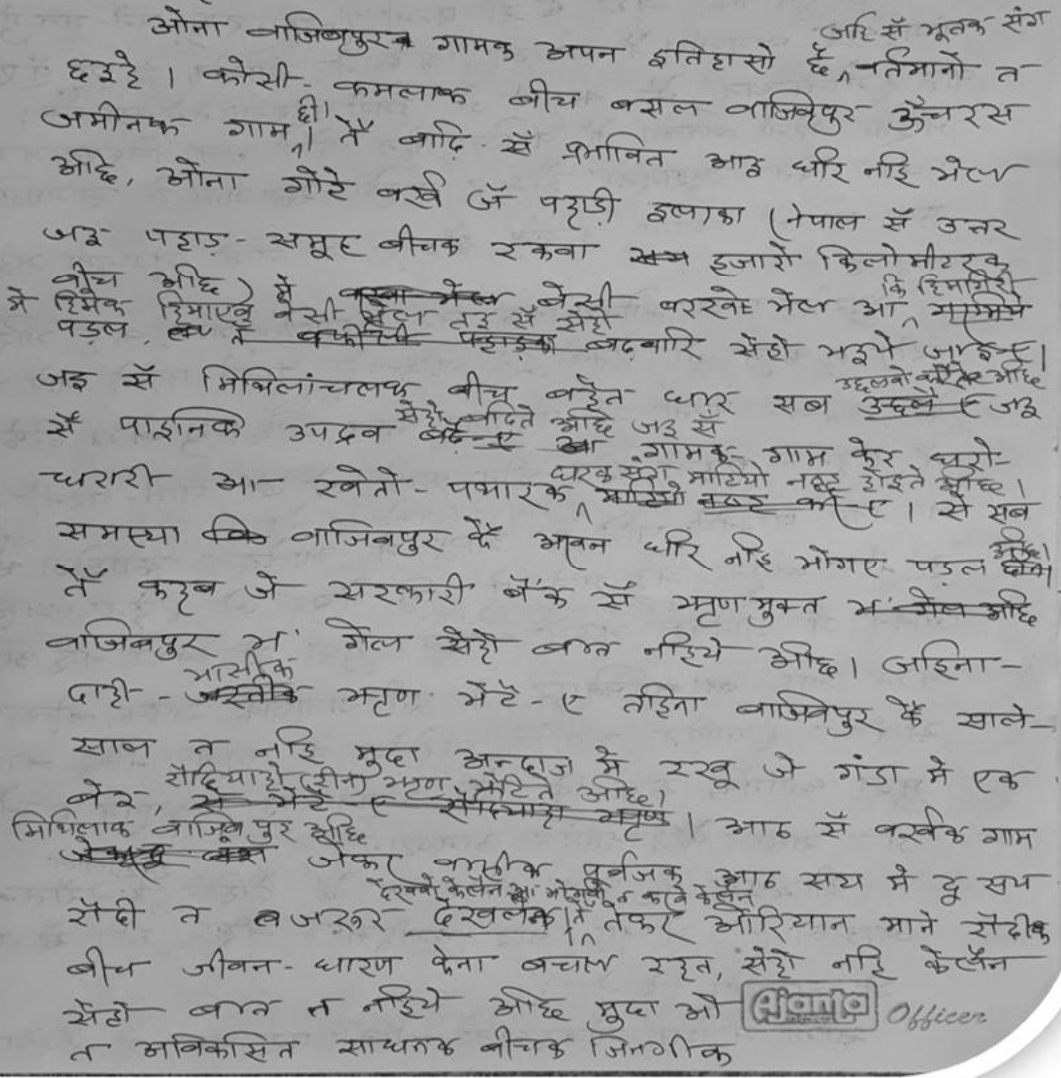 जहि सँ भूतक संग
ओना वाजिबपुरक गामक अपन इतिहासो छै वर्तमानो त
छइहे। कोसी-कमलाक बीच बसल वाजिबपुर ऊँचरस
जमीनक गाम छी। तैं बाढ़ि सँ प्रभावित आइ धरि नहि भेल
अछि, ओना गोटे वर्ख जँ पहाड़ी इलाका (नेपाल सँ उत्तर
जइ पहाड़-समूह बीचक रकवा हजारो किलोमीटरक
बीच अछि) मे बेसी बरखो भेल आ कि हिमगिरी
मे हिमेक हिमाएब बेसी भेल तइ सँ सेहो
पड़ल, बढ़वारि सेहो भइये जाइए।
जइ सँ मिथिलांचलक बीच बहैत धार सब उछलबो करिते अछि जइ
सँ पाइनिक उपद्रव सेहो बढ़िते अछि जइ सँ गामक-गाम केर घरो-
घरारी आ खेतो-पथारक घरक संग माटियो नष्ट होइते अछि। से सब
समस्या वाजिबपुर कें अखन धरि नहि भोगए पड़ल अछि।
तैं कहब जे सरकारी बैंक सँ ऋण मुक्त भ'
वाजिबपुर भ' गेल सेहो बात नहिये अछि। जहिना-
दाही- ऋण भेटै-ए तहिना वाजिबपुर कें साले-
साल त नहि मुदा अन्दाज मे रखू जे गंडा मे एक
बेर, रौदियाहो ऋण भेटिते अछि। आठ सँ वर्खक गाम
मिथिलाक वाजिबपुर अछि
जेकर पूर्वजक आठ सय मे दू सय
रौदी त जरूर देखबो केलैन तेकर ओरियान माने रौदीक
बीच जीवन-धारण केना बचल रहत, सेहो नहि केलैन
सेहो बात त नहिये अछि मुदा ओ
त अविकसित साधनक बीचक जिनगीक
Ajanta Officer